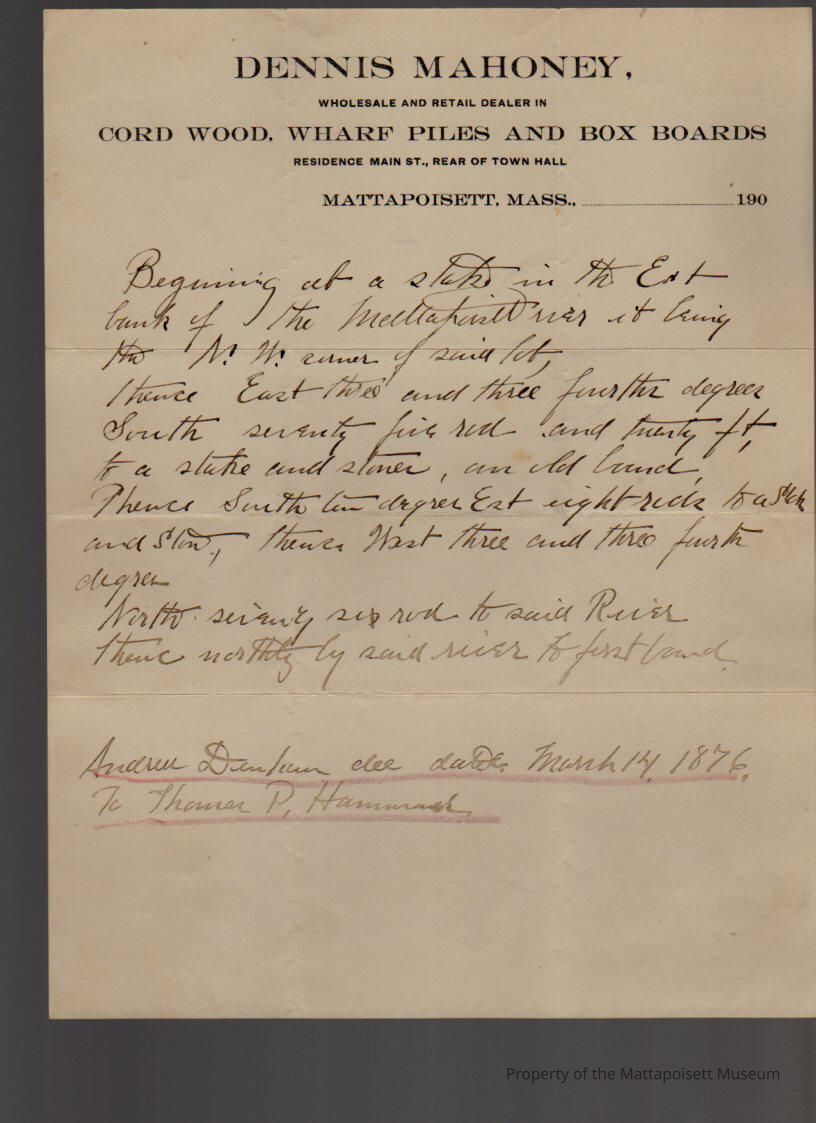 DENNIS MAHONEY,
WHOLESALE AND RETAIL DEALER IN
CORD WOOD, WHARF PILES AND BOX BOARDS
RESIDENCE MAIN ST., REAR OF TOWN HALL
MATTAPOISETT, MASS., 190
Beginning at a stake in the East
bank of the Mattapoisett river it being
the N. W. corner of said lot,
thence East three and three fourths degrees
South seventy five rod and twenty ft,
to a stake and stones, an old bound,
Thence South ten degrees East eight rods to a Stake
and Stone, thence West three and three fourth
degrees
North seventy six rod to said River
thence northly by said river to first bound
Andrew Denham dee dated March 14, 1876,
To Thomas P. Hammond
Property of the Mattapoisett Museum